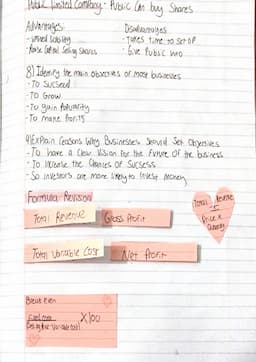 Public Limited Company - Public can buy Shares
Advantages:
- Limited liability
- Raise Capital Selling Shares
Disadvantages
- Takes time to set up
- Give Public info
8) Identify the main objectives of most businesses
- To Succeed
- To Grow
- To gain Popularity
- To make Profits
9) Explain reasons Why Businesses Should Set Objectives
- To have a Clear Vision for the Future of the business
- To increase the Chances of Success
- So investors are more likely to invest money
Formula Revision
Total Revenue
Gross Profit
Total Revenue
Price x
Quantity
Total Variable Cost
Net Profit
Break Even
Fixed costs
X100